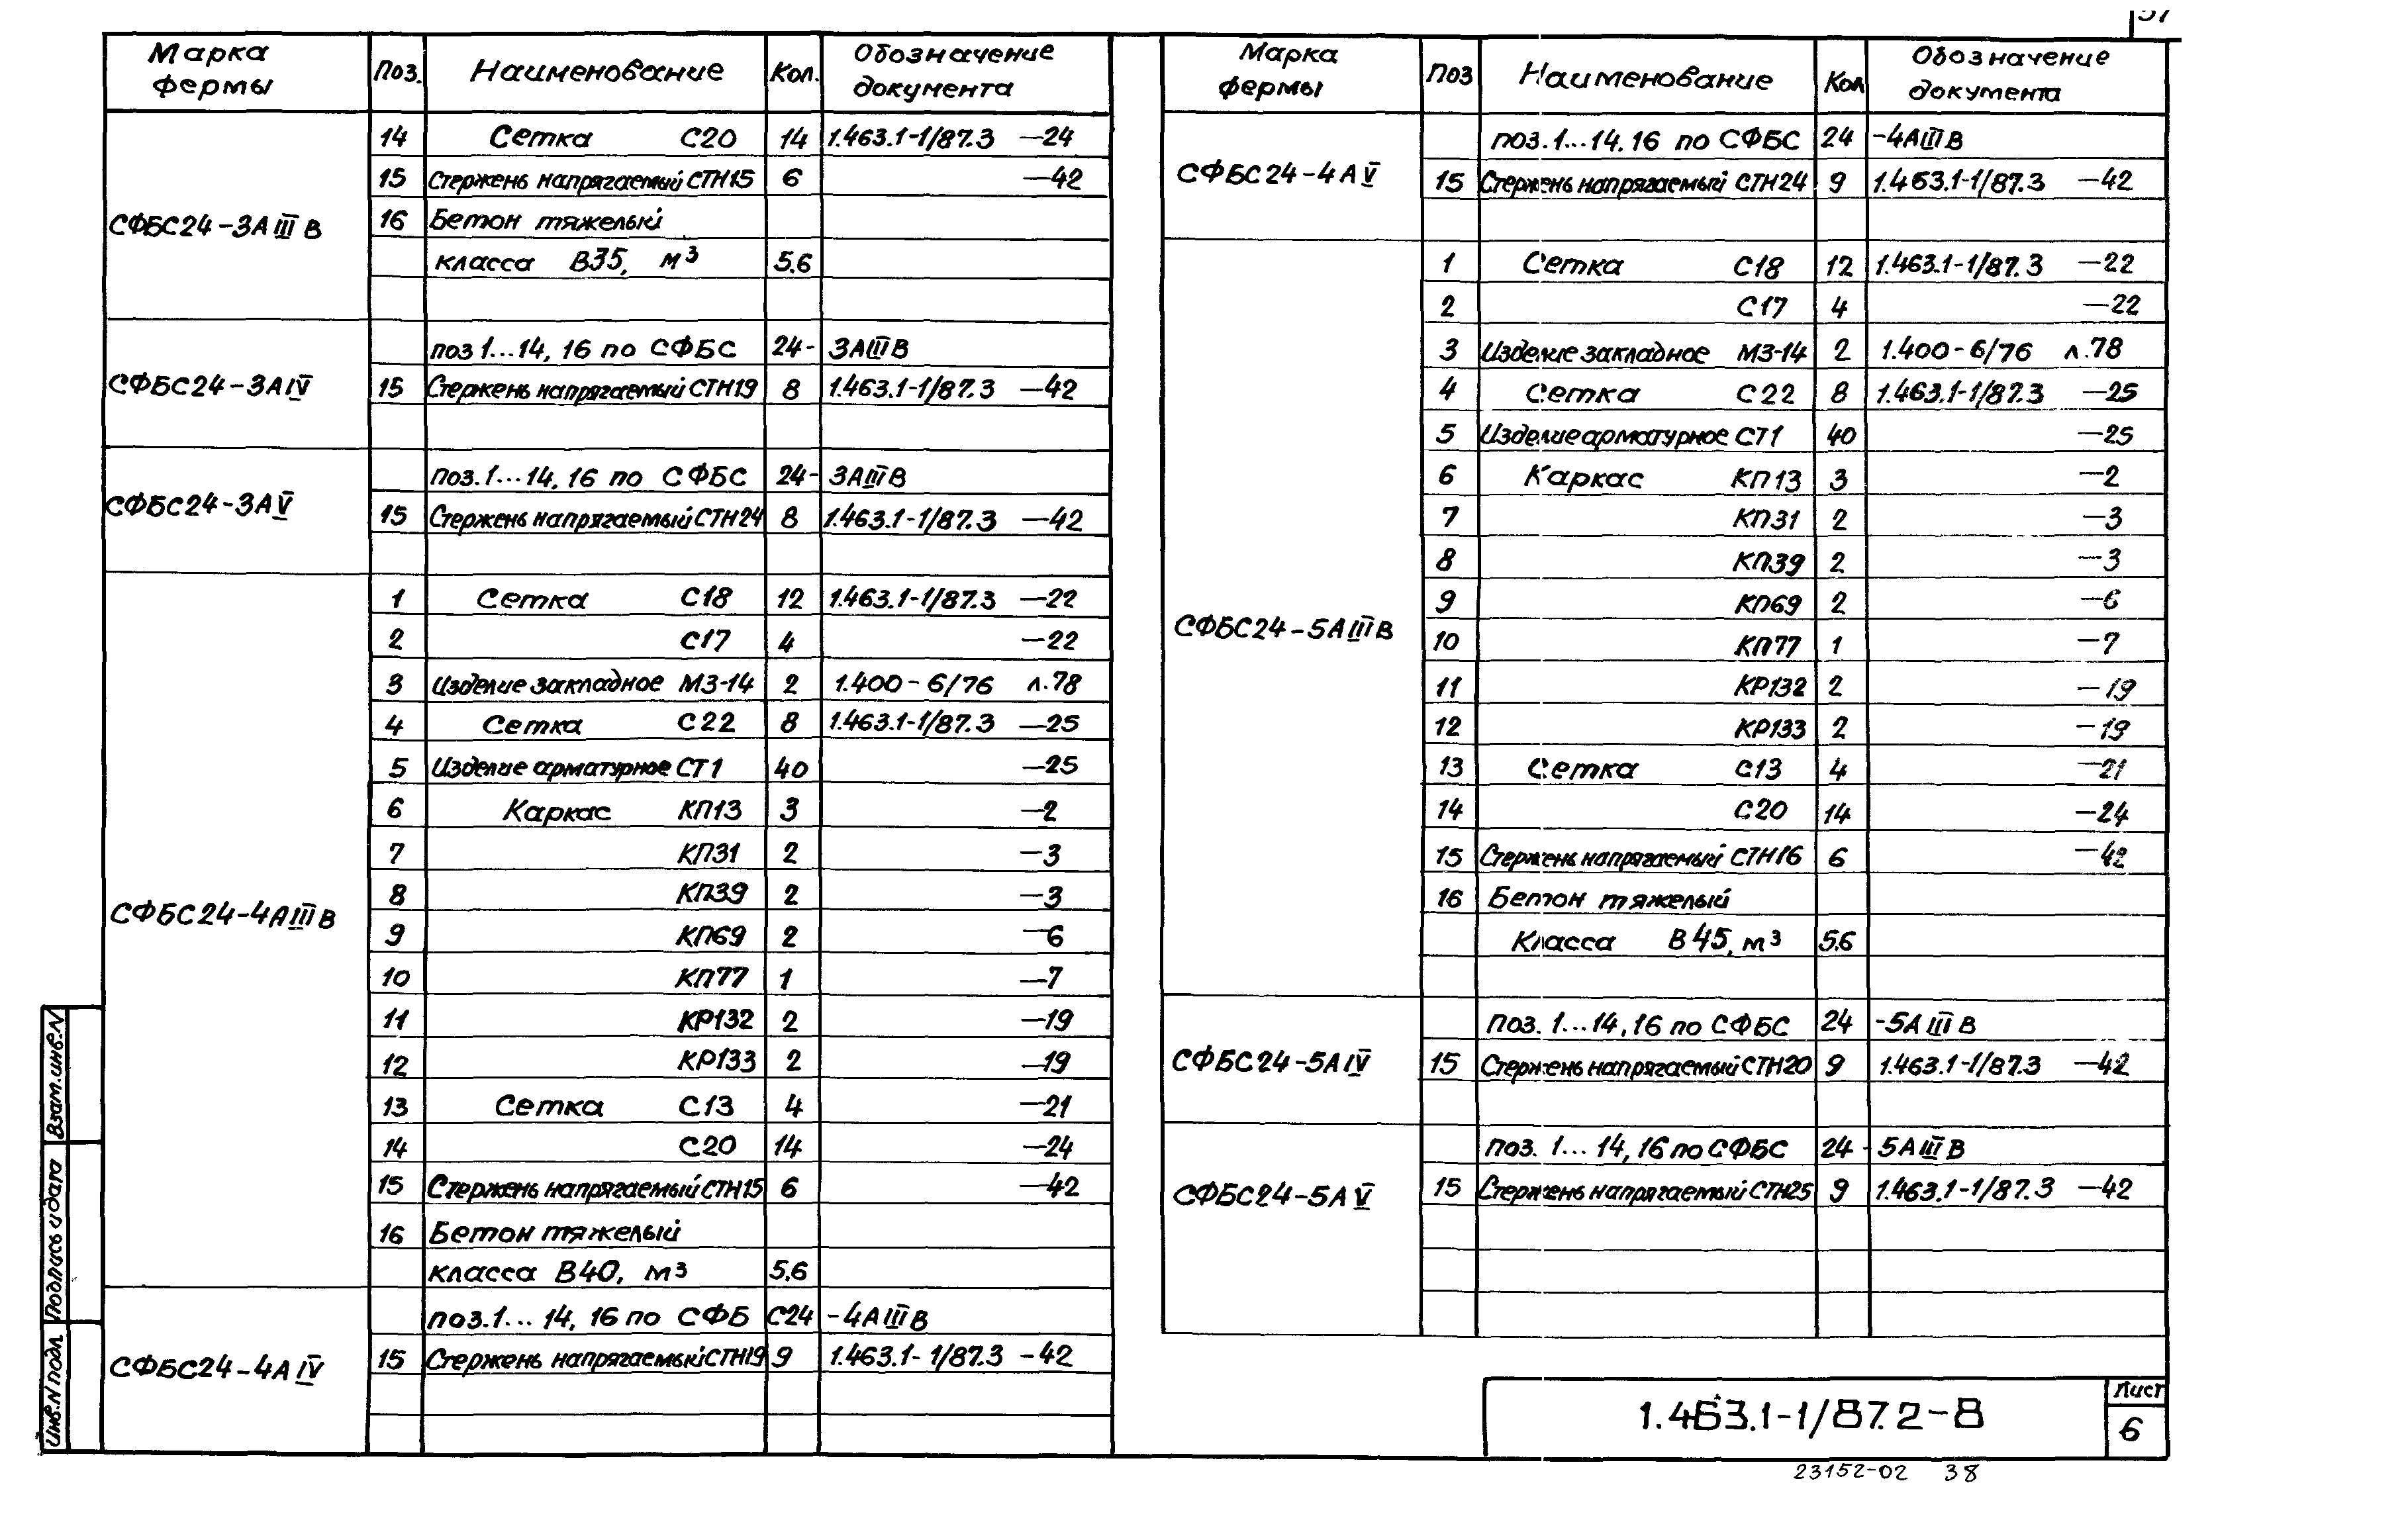 37
Марка фермы Поз. Наименование Кол. Обозначение документа
СФБС24-3АIIIВ
14 Сетка С20 14 1.463.1-1/87.3 —24
15 Стержень напрягаемый СТН15 6 —42
16 Бетон тяжелый
класса В35, м³ 5.6
СФБС24-3АIV
поз 1...14, 16 по СФБС 24- 3АIIIВ
15 Стержень напрягаемый СТН19 8 1.463.1-1/87.3 —42
СФБС24-3АV
поз. 1...14, 16 по СФБС 24- 3АIIIВ
15 Стержень напрягаемый СТН24 8 1.463.1-1/87.3 —42
СФБС24-4АIIIВ
1 Сетка С18 12 1.463.1-1/87.3 —22
2 С17 4 —22
3 Изделие закладное МЗ-14 2 1.400-6/76 л.78
4 Сетка С22 8 1.463.1-1/87.3 —25
5 Изделие арматурное СТ1 40 —25
6 Каркас КП13 3 —2
7 КП31 2 —3
8 КП39 2 —3
9 КП69 2 —6
10 КП77 1 —7
11 КР132 2 —19
12 КР133 2 —19
13 Сетка С13 4 —21
14 С20 14 —24
15 Стержень напрягаемый СТН15 6 —42
16 Бетон тяжелый
класса В40, м³ 5.6
СФБС24-4АIV
поз. 1... 14, 16 по СФБ С24 -4АIIIВ
15 Стержень напрягаемый СТН19 9 1.463.1-1/87.3 -42
Марка фермы Поз Наименование Кол Обозначение документа
СФБС24-4АV
поз. 1...14. 16 по СФБС 24 -4АIIIВ
15 Стержень напрягаемый СТН24 9 1.463.1-1/87.3 —42
СФБС24-5АIIIВ
1 Сетка С18 12 1.463.1-1/87.3 —22
2 С17 4 —22
3 Изделие закладное МЗ-14 2 1.400-6/76 л.78
4 Сетка С22 8 1.463.1-1/87.3 —25
5 Изделие арматурное СТ1 40 —25
6 Каркас КП13 3 —2
7 КП31 2 —3
8 КП39 2 —3
9 КП69 2 —6
10 КП77 1 —7
11 КР132 2 —19
12 КР133 2 —19
13 Сетка С13 4 —21
14 С20 14 —24
15 Стержень напрягаемый СТН16 6 —42
16 Бетон тяжелый
Класса В45, м³ 5.6
СФБС24-5АIV
поз. 1...14, 16 по СФБС 24 -5АIIIВ
15 Стержень напрягаемый СТН20 9 1.463.1-1/87.3 —42
СФБС24-5АV
поз. 1... 14, 16 по СФБС 24 - 5АIIIВ
15 Стержень напрягаемый СТН25 9 1.463.1-1/87.3 —42
Взам.инв.N
Подпись и дата
Инв.N подл
1.463.1-1/87.2-8
Лист
6
23152-02 38